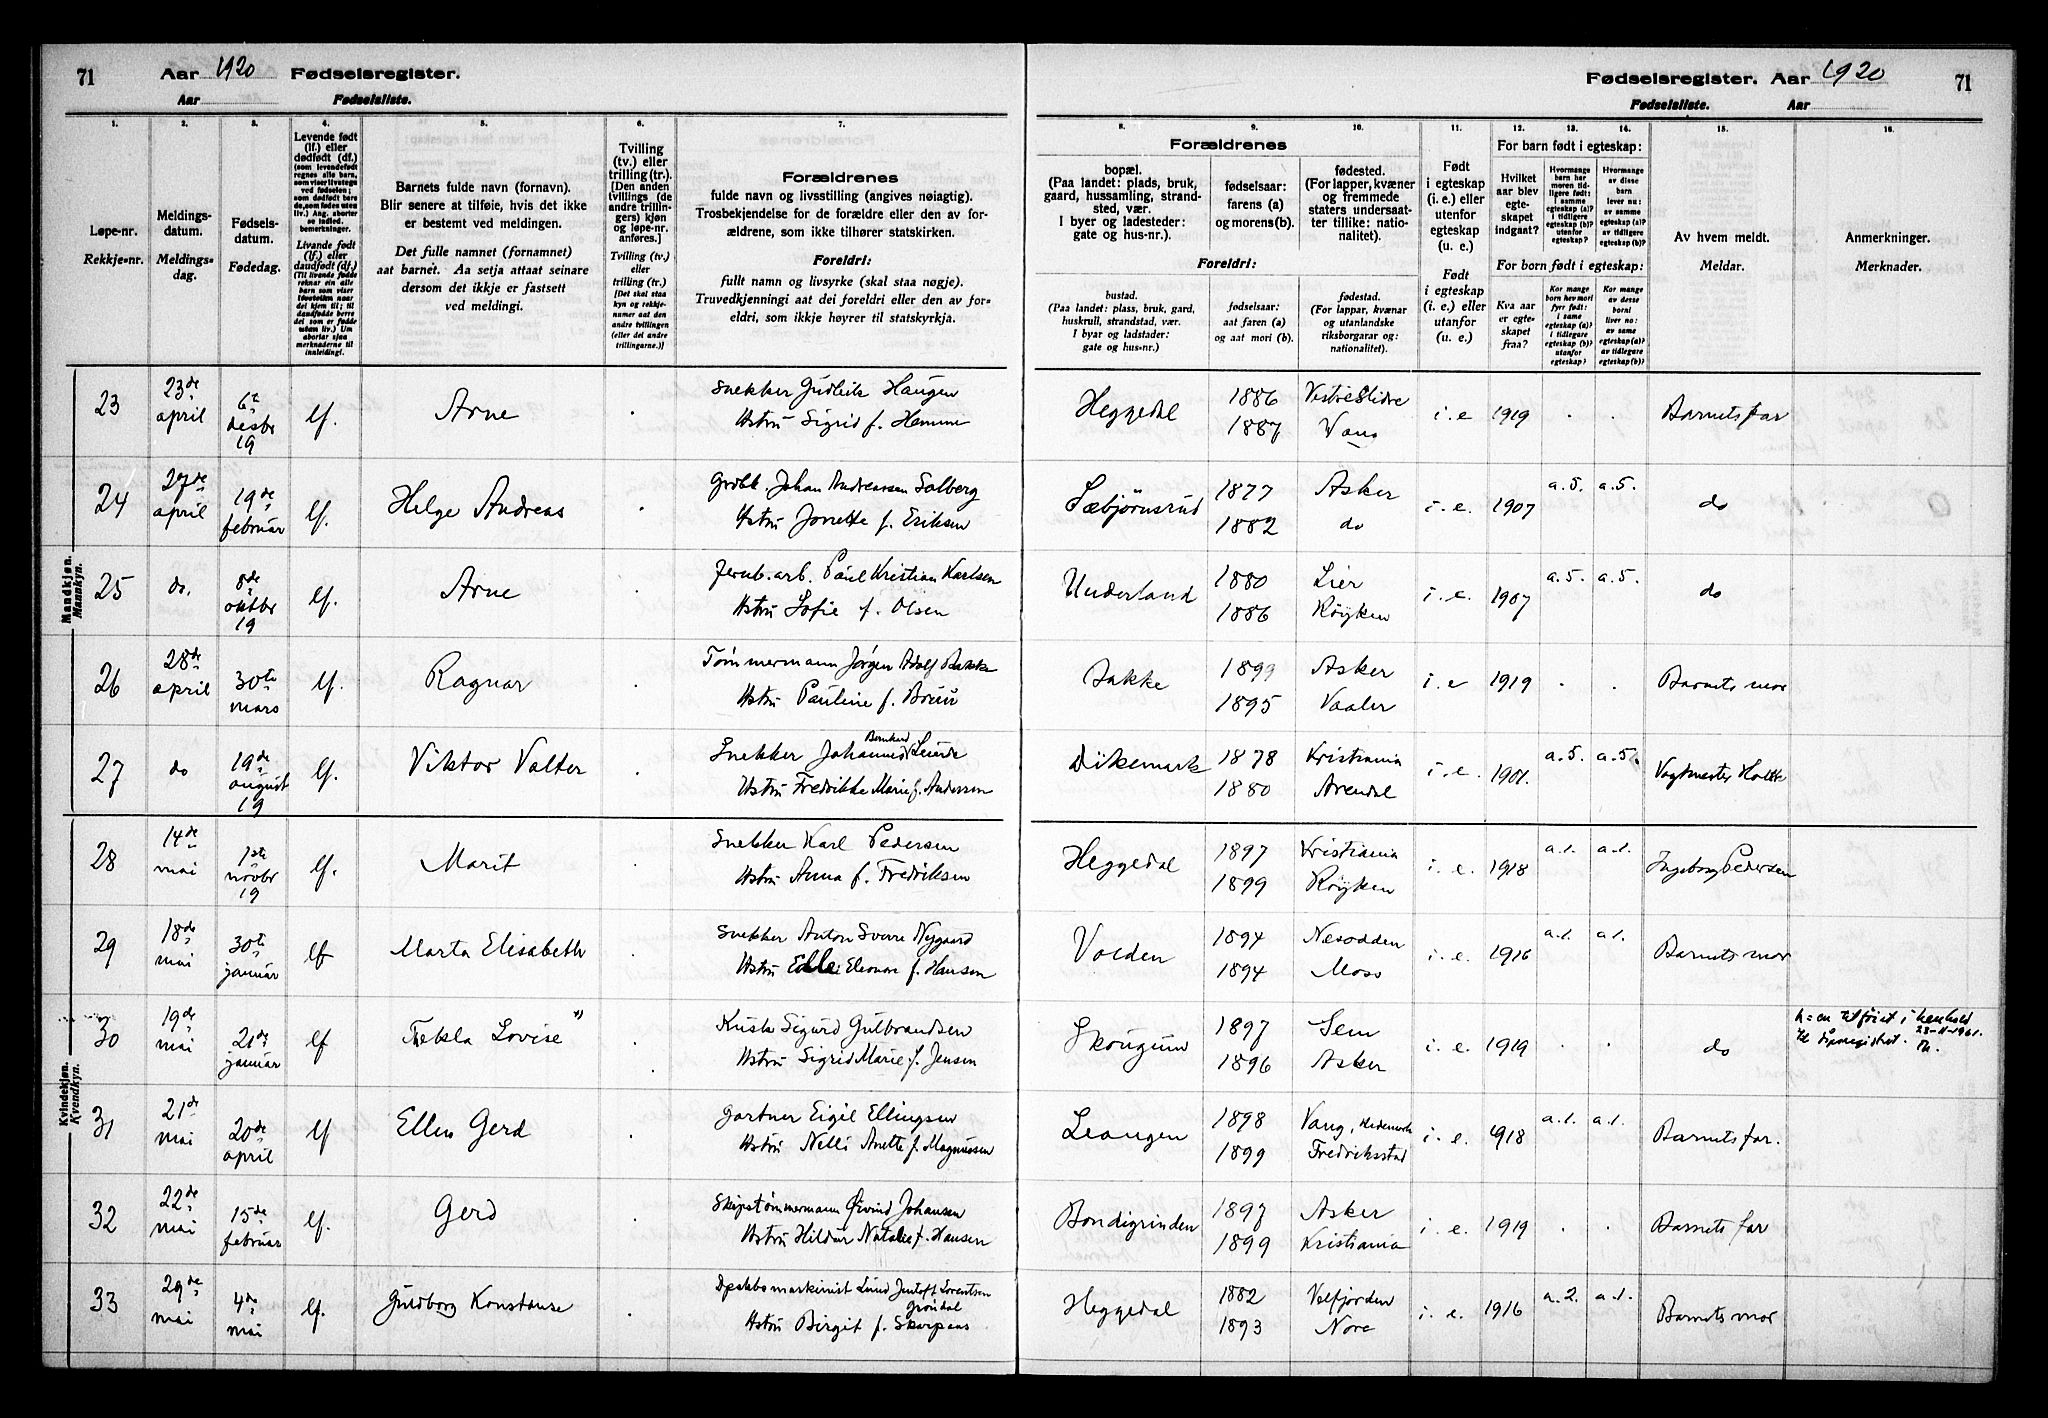 71 Aar 1920 Fødselsregister.
Aar Fødselsliste.
Fødselsregister. Aar 1920 71
Fødselsliste. Aar
1. 2. 3. 4. 5. 6. 7.
Løpe-nr.
Rekkje-nr.
Meldings-
datum.
Meldings-
dag.
Fødsels-
datum.
Fødedag.
Levende født
(lf.) eller
dødfødt (df.)
Livande født
(lf.) eller
daudfødt (df.)
Barnets fulde navn (fornavn).
Blir senere at tilføie, hvis det ikke
er bestemt ved meldingen.
Det fulle namnet (fornamnet)
aat barnet. Aa setja attaat seinare
dersom det ikkje er fastsett
ved meldingi.
Tvilling
(tv.) eller
trilling (tr.).
[Den anden
tvillings (de
andre trillin-
gers) kjøn
og løpe-nr.
anføres.]
Tvilling (tv.)
eller
trilling (tr.)
[Det skal staa
kyn og rekkje-
numer aat den
andre tvillingen
(eller dei andre
trillingarne.)]
Forældrenes
fulde navn og livsstilling (angives nøiagtig).
Trosbekjendelse for de forældre eller den av for-
ældrene, som ikke tilhører statskirken.
Foreldri:
fullt namn og livsyrke (skal staa nøgje).
Truvedkjenningi aat dei foreldri eller den av for-
eldri, som ikkje høyrer til statskyrkja.
8. 9. 10. 11. 12. 13. 14. 15. 16.
Forældrenes
bopæl.
(Paa landet: plads, bruk,
gaard, hussamling, strand-
sted, vær.
I byer og ladesteder:
gate og hus-nr.).
fødselsaar:
farens (a)
og morens (b).
fødested.
(For lapper, kvæner
og fremmede
staters undersaat-
ter tillike: natio-
nalitet).
Foreldri:
bustad.
(Paa landet: plass, bruk, gard,
huskrull, strandstad, vær.
I byar og ladstader:
gate og hus-nr.)
fødselsaar:
aat faren (a)
og aat mori (b).
fødestad.
(For lappar, kvænar
og utanlandske
riksborgarar og:
nationalitet).
Født
i egteskap
(i. e.) eller
utenfor
egteskap
(u. e.)
Født
i egteskap
(i. e.) eller
utanfor
(u. e.)
For barn født i egteskap:
Hvilket
aar blev
egte-
skapet
indgaat?
Hvormange
barn har
moren tid-
ligere født:
i samme
egteskap (a)?
i tidligere
egteskap (b)?
utenfor
egteskap?
Hvormange
av disse
barn
lever nu:
av samme
egteskap (a)?
av tidligere
egteskap (b)?
For born født i egteskap:
Kva aar
er egte-
skapet
fraa?
Kor mange
born hev mori
fyrr født:
i same
egteskap (a)?
i tidlegare
egteskap (b)?
utanfor
egteskap?
Kor mange
av desse
borni
liver no:
av same
egteskap (a)?
av tidlegare
egteskap (b)?
Av hvem meldt.
Meldar.
Anmerkninger.
Merknader.
Mandkjøn.
Mannkyn.
23 23de april 6te desbr 19 lf. Arne
Snekker Gudleik Haugen
Hstru Sigrid f. Hemme
Heggedal 1886 Vestre Slidre i. e 1919 . . Barnets far
1887 Vang
24 27de april 19de februar lf. Helge Andreas
Johan Andreassen Solberg
Hstru Jonette f. Eriksen
Sæbjørnsrud 1877 Asker i. e. 1907 a. 5. a. 5. do
1882 do
25 do. 8de oktbr 19 lf. Arne
Jernb. arb. Paul Kristian Karlsen
Hstru Sofie f. Olsen
Underland 1880 Lier i. e. 1907 a. 5. a. 5. do
1886 Røyken
26 28de april 30te mars lf. Ragnar
Tømmermann Jørgen Adolf Bakke
Hstru Pauline f. Bruu
Bakke 1899 Asker i. e 1919 . . Barnets mor
1895 Vaaler
27 do 19de august 19 lf. Viktor Valter
Snekker Johannes Leierde
Hstru Fredrikke Marie f. Andersen
Dikemark 1878 Kristiania i. e. 1901. a. 5. a. 5. Vagtmester Holtte
1880 Arendal
Kvindekjøn.
Kvendkyn.
28 14de mai 1ste novbr 19 lf. Marit
Snekker Karl Pedersen
Hstru Anna f. Fredriksen
Heggedal 1897 Kristiania i. e. 1918 a. 1. a. 1. Ingeborg Pedersen
1899 Røyken
29 18de mai 30te januar lf Marta Elisabeth
Snekker Anton Sverre Nygaard
Hstru Eleonore f. Hansen
Volden 1894 Næsodden i. e. 1916 a. 1. a. 1. Barnets mor
1894 Moss
30 19de mai 21de januar lf Thekla Lovise *)
Kusk Sigurd Gulbrandsen
Hstru Sigrid Marie f. Jensen
Skougum 1897 Sem i. e. 1919 . . do h = en tilføiet i henhold
1896 Asker til dåpsregistret. 23-11-1961.
31 21de mai 20de april lf Ellen Gerd
Gartner Eigil Ellingsen
Hstru Nelli Anette f. Magnussen
Leangen 1898 Vang, Hedemark i. e. 1918 a. 1. a. 1. Barnets far.
1899 Fredriksstad
32 22de mai 15de februar lf. Gerd
Skipstømmermann Øivind Johansen
Hstru Hildur Natalie f. Hansen
Bondigrinden 1897 Asker i. e. 1919 . . Barnets far
1899 Kristiania
33 29de mai 4de mai lf. Gudborg Konstanse
Dpskbsmaskinist Lund Jentoft Lorentsen
Grøndal
Hstru Birgit f. Skarpaas
Heggedal 1882 Velfjorden i. e. 1916 a. 2. a. 1. Barnets mor
1893 Nore